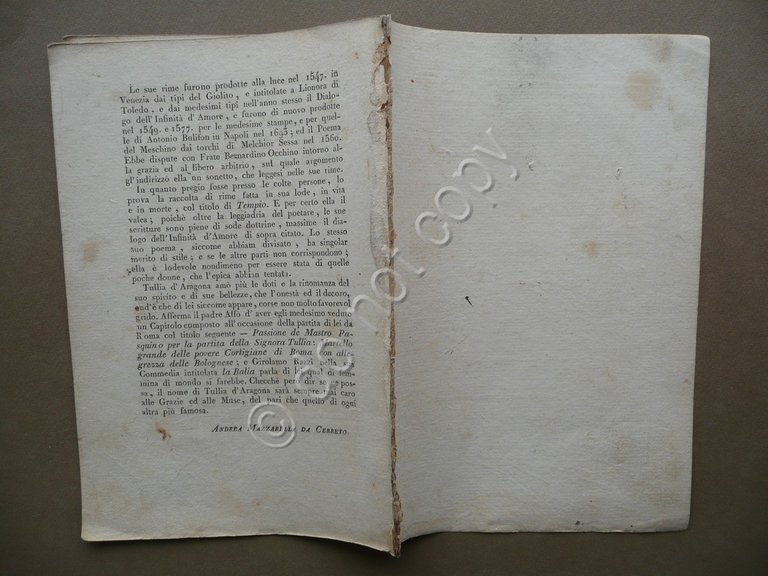 Le sue rime furono prodotte alla luce nel 1547. in
Venezia dai tipi del Giolito, e intitolate a Lionora di
Toledo, e dai medesimi tipi nell'anno stesso il Dialo-
go dell'Infinità d'Amore, e furono di nuovo prodotte
nel 1549. e 1577. per le medesime stampe, e per quel-
le di Antonio Bulifon in Napoli nel 1693; ed il Poema
del Meschino dai torchi di Melchior Sessa nel 1560.
Ebbe dispute con Frate Bernardino Occhino intorno al-
la grazia ed al libero arbitrio, sul quale argomento
gl'indirizzò ella un sonetto, che leggesi nelle sue rime.
In quanto pregio fosse presso le colte persone, lo
prova la raccolta di rime fatta in sua lode, in vita
e in morte, col titolo di Tempio. E per certo ella il
valea; poichè oltre la leggiadria del poetare, le sue
scritture sono piene di sode dottrine, massime il dia-
logo dell'Infinità d'Amore di sopra citato. Lo stesso
suo poema, siccome abbiam divisato, ha singolar
merito di stile; e se le altre parti non corrispondono;
ella è lodevole nondimeno per essere stata di quelle
poche donne, che l'epica abbian tentata.
Tullia d'Aragona amò più le doti e la rinomanza del
suo spirito e di sue bellezze, che l'onestà ed il decoro,
ond'è che di lei siccome appare, corse non molto favorevol
grido. Afferma il padre Affò d'aver egli medesimo veduto
un Capitolo composto all'occasione della partita di lei da
Roma col titolo seguente — Passione de Mastro Pa-
squino per la partita della Signora Tullia: Martello
grande delle povere Cortigiane di Roma con alle-
grezza delle Bolognese; e Girolamo Razzi nella sua
Commedia intitolata la Balia parla di lei qual di fem-
mina di mondo si farebbe. Checchè però dir se ne pos-
sa, il nome di Tullia d'Aragona sarà sempre mai caro
alle Grazie ed alle Muse, del pari che quello di ogni
altra più famosa.
ANDREA MAZZARELLA DA CERRETO.
© do not copy